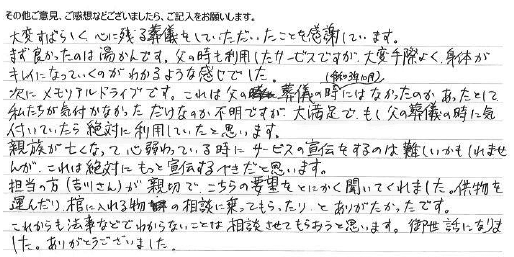 その他ご意見、ご感想などございましたら、ご記入をお願いします。
大変すばらしく、心に残る葬儀をしていただいたことを感謝しています。
まず良かったのは湯かんです。父の時も利用したサービスですが、大変手際よく、身体が
キレイになっていくのがわかるような感じでした。
次にメモリアルドライブです。これは父の葬儀の時にはなかったのか、あったとして
私たちが気付かなかっただけなのか不明ですが、大満足で、もし父の葬儀の時に気
付いていたら絶対に利用していたと思います。
親族が亡くなって心弱っている時にサービスの宣伝をするのは難しいかもしれませ
んが、これは絶対にもっと宣伝するべきだと思います。
担当の方(吉川さん)が親切で、こちらの要望をとにかく聞いてくれました。供物を
選んだり、棺に入れる物の相談に乗ってもらったり、とありがたかったです。
これからも法事などでわからないことは相談させてもらおうと思います。御世話になりま
した。ありがとうございました。